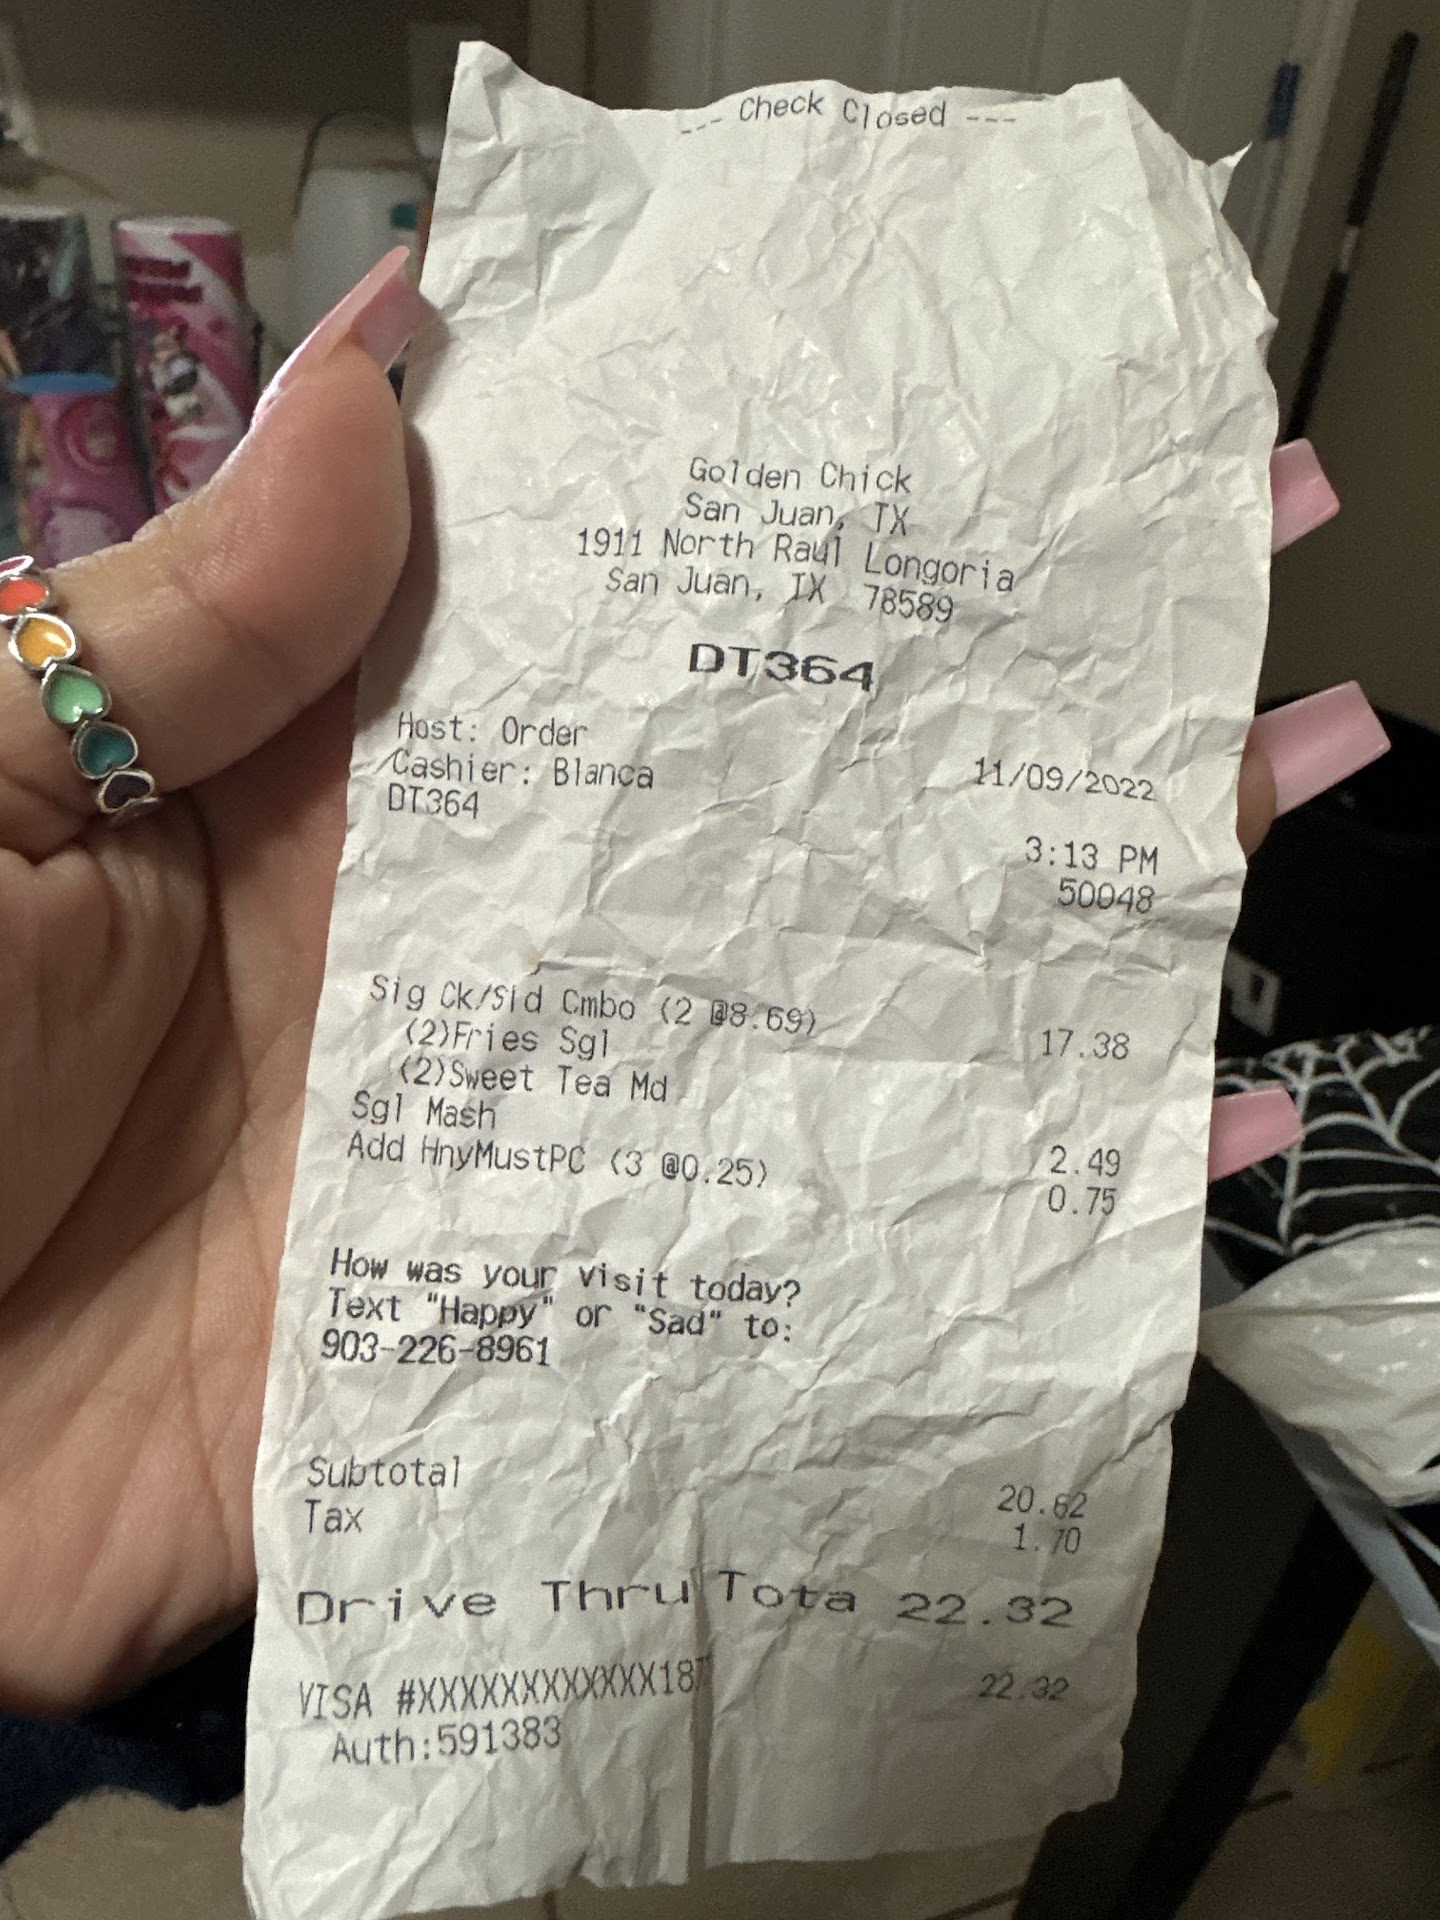 --- Check Closed ---
Golden Chick
San Juan, TX
1911 North Raul Longoria
San Juan, TX 78589
DT364
Host: Order
Cashier: Blanca 11/09/2022
DT364 3:13 PM
50048
Sig Ck/Sld Cmbo (2 @8.69) 17.38
(2)Fries Sgl
(2)Sweet Tea Md
Sgl Mash 2.49
Add HnyMustPC (3 @0.25) 0.75
How was your visit today?
Text "Happy" or "Sad" to:
903-226-8961
Subtotal 20.62
Tax 1.70
Drive Thru Tota 22.32
VISA 22.32
Auth:591383